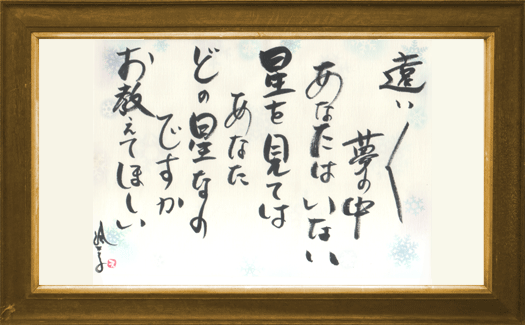 遠い〱
夢の中
あなたはいない
星を見ては
あなた
どの星なの
ですか
お教えてほしい